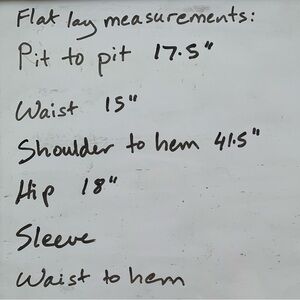 Flat lay measurements:
Pit to pit 17.5"
Waist 15"
Shoulder to hem 41.5"
Hip 18"
Sleeve
Waist to hem